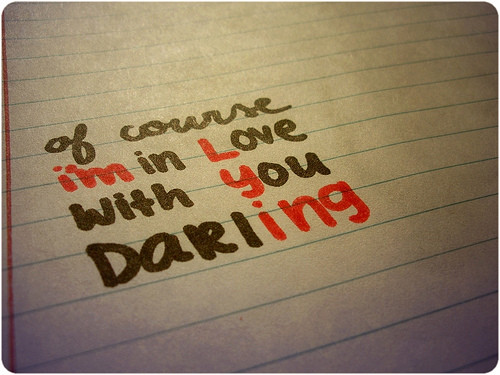 of course
i'm in Love
With you
DARling